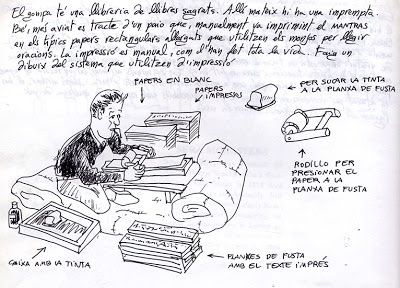 El gompa té una llibreria de llibres sagrats. Allí mateix hi ha una imprempta.
Bé, més aviat es tracte d'un paio que, manualment va imprimint el MANTRAS
en els típics papers rectangulars allargats que utilitzen els monjos per llegir
oracions. La impressió és manual, com d'han fet tota la vida. Faig un
dibuix del sistema que utilitzen d'impressió
PAPERS EN BLANC
PAPERS
IMPRESSOS
PER SUCAR LA TINTA
A LA PLANXA DE FUSTA
RODILLO PER
PRESIONAR EL
PAPER A LA
PLANXA DE FUSTA
CAIXA AMB LA TINTA
PLANXES DE FUSTA
AMB EL TEXTE IMPRÉS